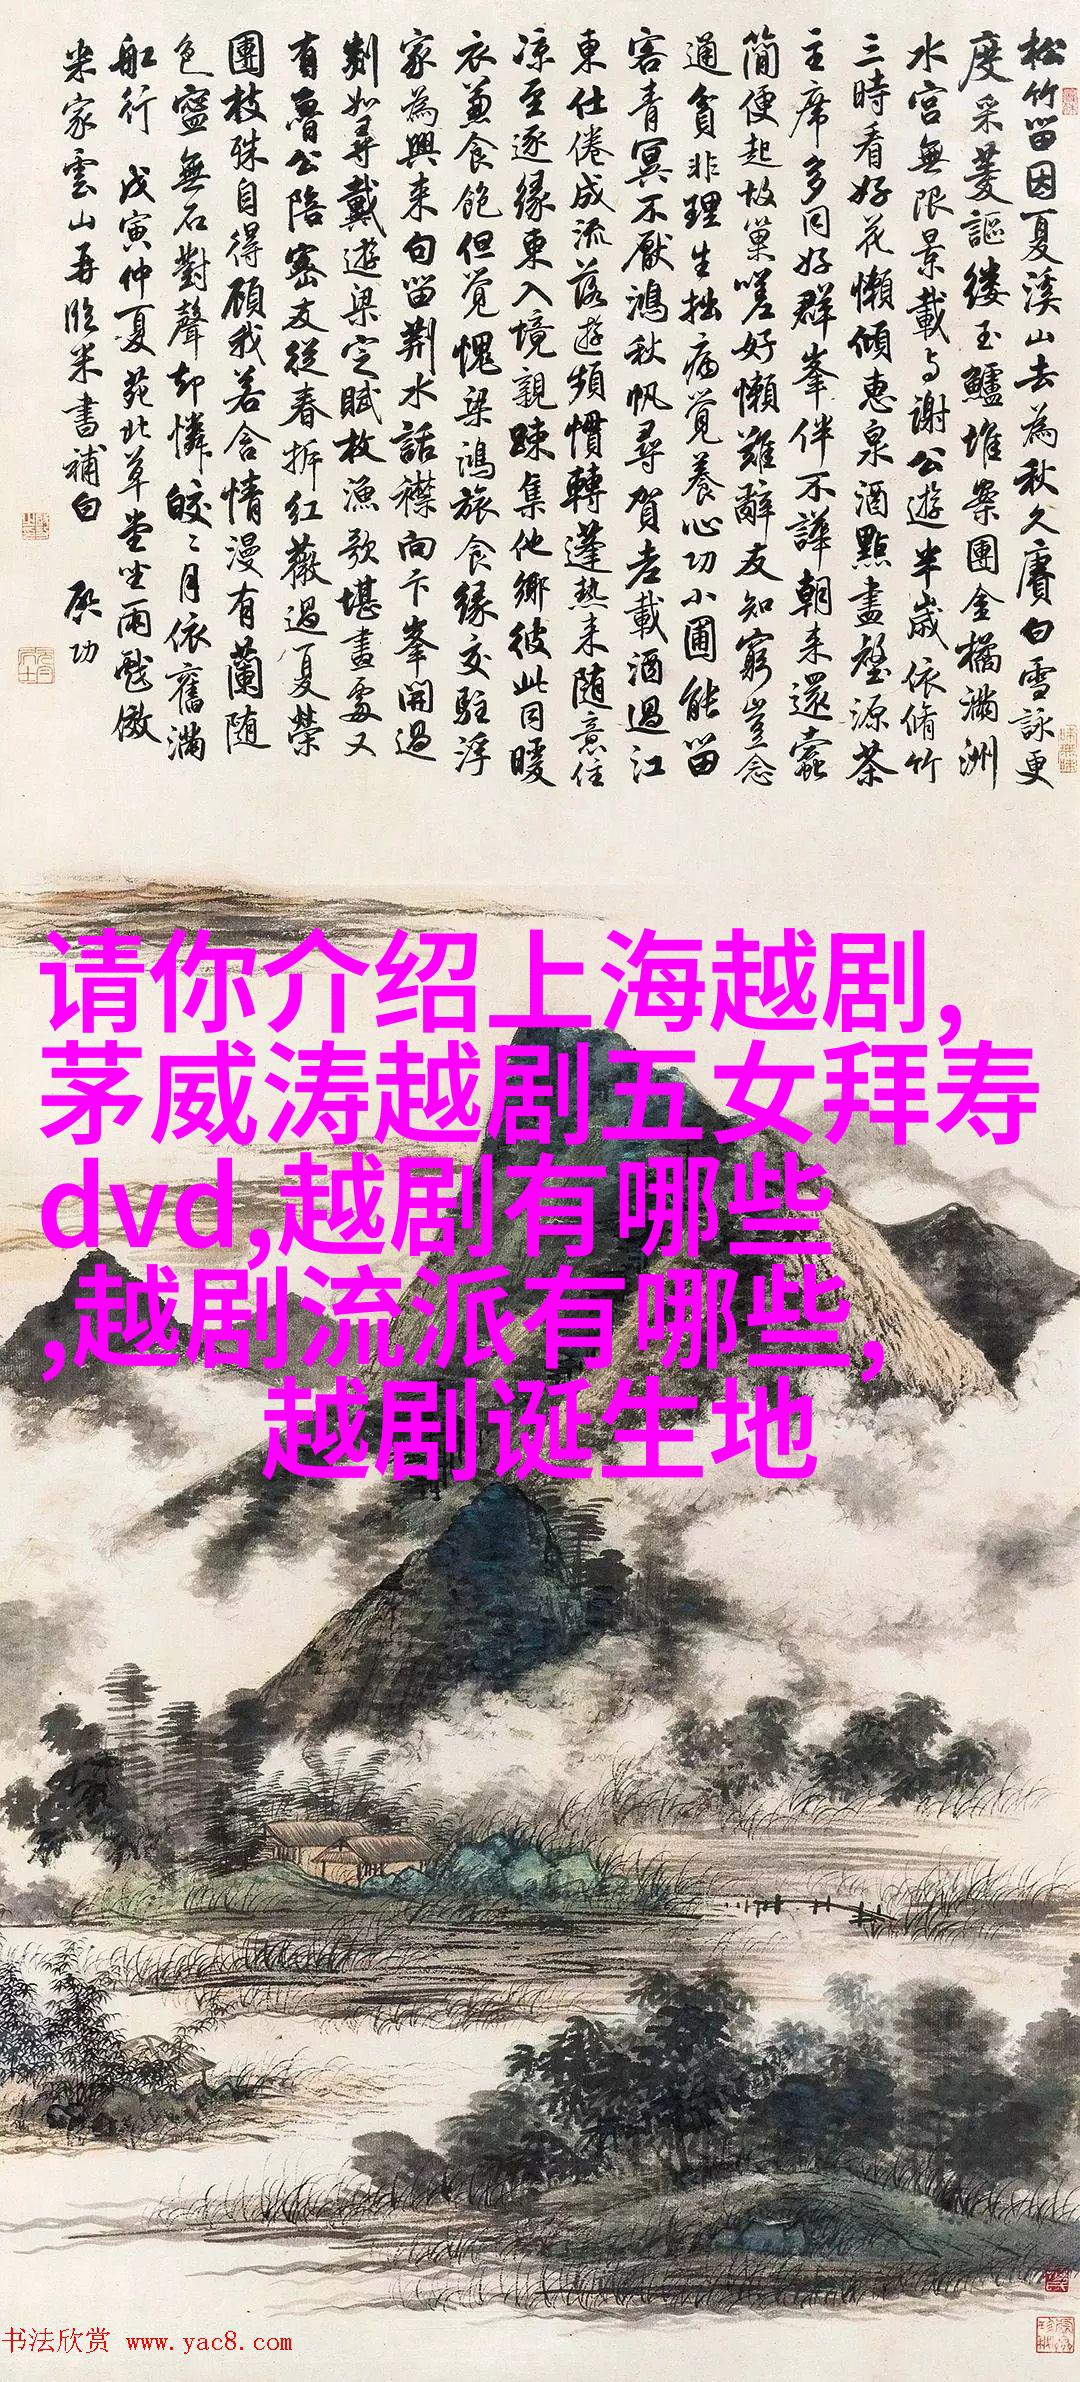 松竹留因夏溪山去為秋久賡白雪詠更
度采菱謳縷玉鱸堆案團金橘滿洲
水宮無限景載与謝公遊半歲依脩竹
三時看好花懶傾惠泉酒點盡壑源茶
主席多同好群峯伴不譁朝来還蠹
簡便起故巢嗟好懶難辭友知窮豈念
通貧非理生拙病覺養心功小圃能留
客青冥不厭鴻秋帆尋賀老載酒過江
東仕倦成流落遊頻慣轉蓬熱来随意住
涼至逐緣東入境親踈集他鄉彼此同暖
衣兼食飽但覺愧梁鴻旅食緣交駐浮
家為興来句留荆水話襟向卞峯開過
剡如尋戴遊梁定賦枚漁歌堪畫處又
有魯公陪密友從春拆紅薇過夏榮
團枝殊自得顧我若含情漫有蘭随
色寧無石對聲却憐皎〻月依舊滿
舡行 戊寅仲夏苑北草堂坐雨戲倣
米家雲山再臨米書補白 啟功
请你介绍上海越剧,
茅威涛越剧五女拜寿
dvd,越剧有哪些
,越剧流派有哪些,
越剧诞生地
书法欣赏 www.yac8.com